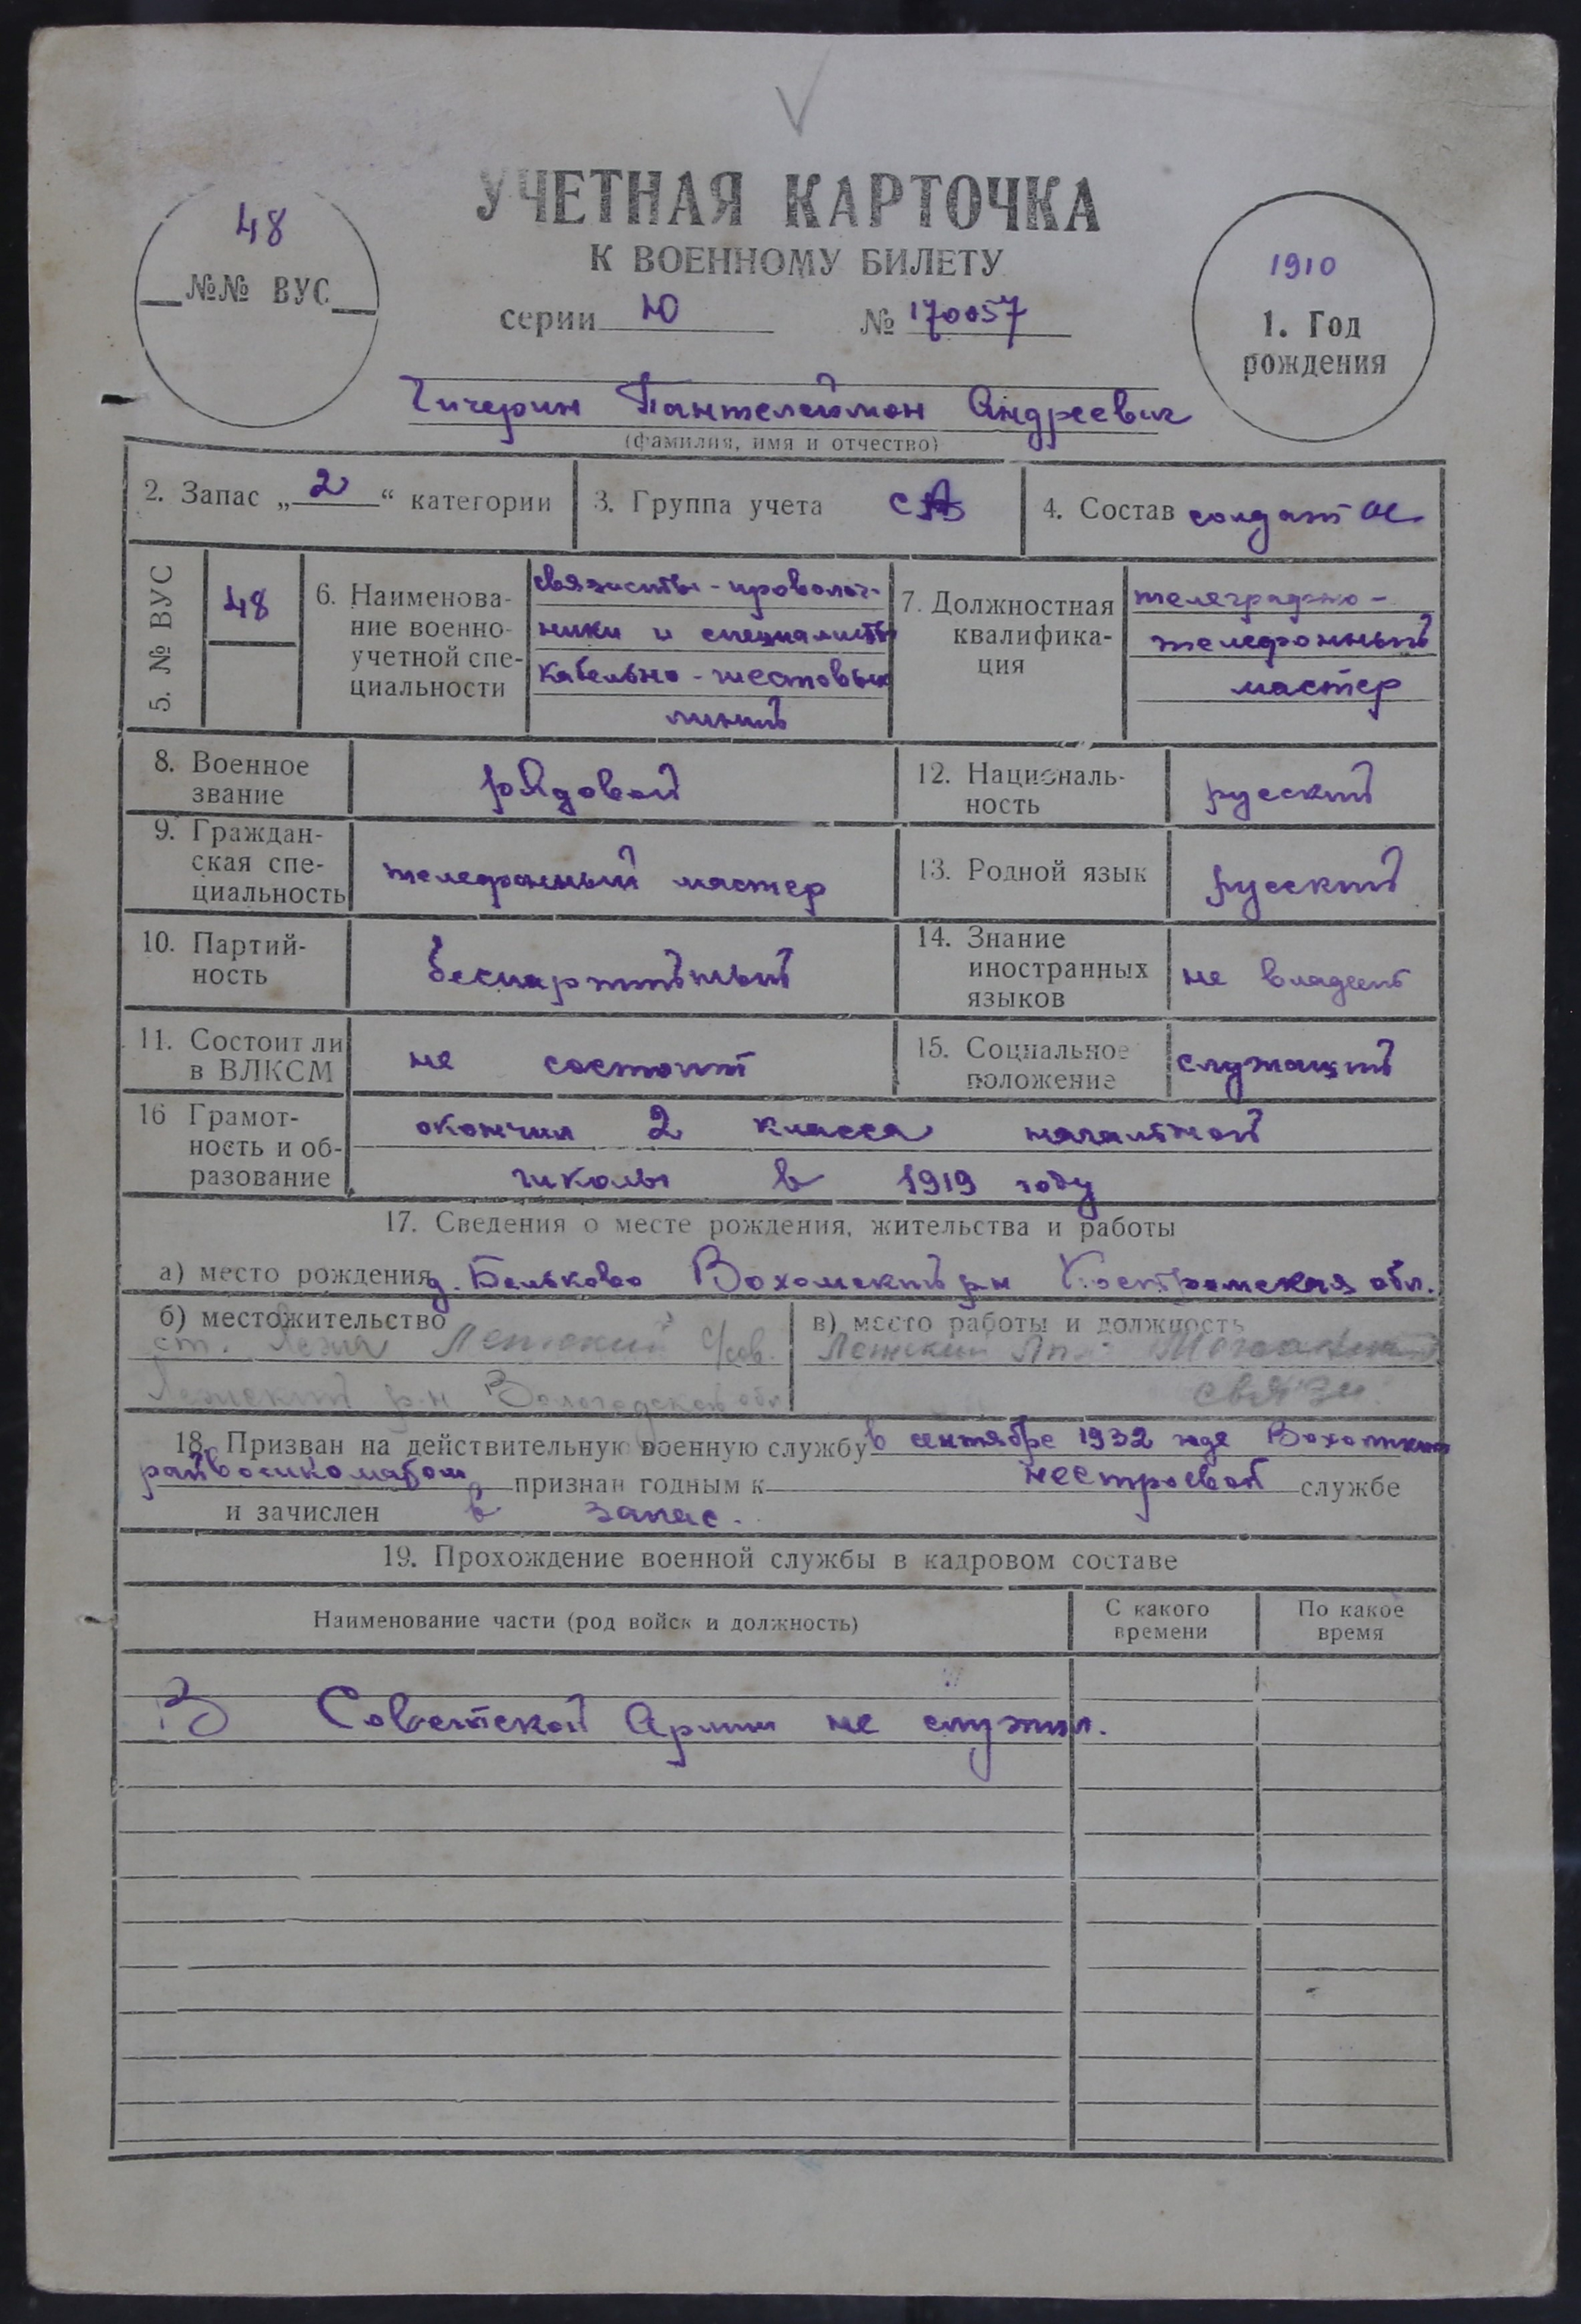 УЧЕТНАЯ КАРТОЧКА
К ВОЕННОМУ БИЛЕТУ
серии Ю № 170057
48
№№ ВУС
1910
1. Год
рождения
Чичерин Пантелеймон Андреевич
(фамилия, имя и отчество)
2. Запас „ 2 “ категории
3. Группа учета СА
4. Состав солдат
5. № ВУС
48
6. Наименова-
ние военно-
учетной спе-
циальности
связисты-проволоч-
ники и специалисты
кабельно-шестовых
линий
7. Должностная
квалифика-
ция
телеграфно-
телефонный
мастер
8. Военное
звание
рядовой
12. Националь-
ность
русский
9. Граждан-
ская спе-
циальность
телефонный мастер
13. Родной язык
русский
10. Партий-
ность
беспартийный
14. Знание
иностранных
языков
не владеет
11. Состоит ли
в ВЛКСМ
не состоит
15. Социальное
положение
служащий
16 Грамот-
ность и об-
разование
окончил 2 класса начальной
школы в 1919 году
17. Сведения о месте рождения, жительства и работы
а) место рождения д. Бельково Вохомский р-н Костромская обл.
б) местожительство
ст. Лежа Лежский с/сов.
Лежский р-н Вологодской обл
в) место работы и должность
Лежский
связи
18. Призван на действительную военную службу в сентябре 1932 года Вохомским
райвоенкоматом признан годным к нестроевой службе
и зачислен в запас.
19. Прохождение военной службы в кадровом составе
Наименование части (род войск и должность)
С какого
времени
По какое
время
В Советской Армии не служил.